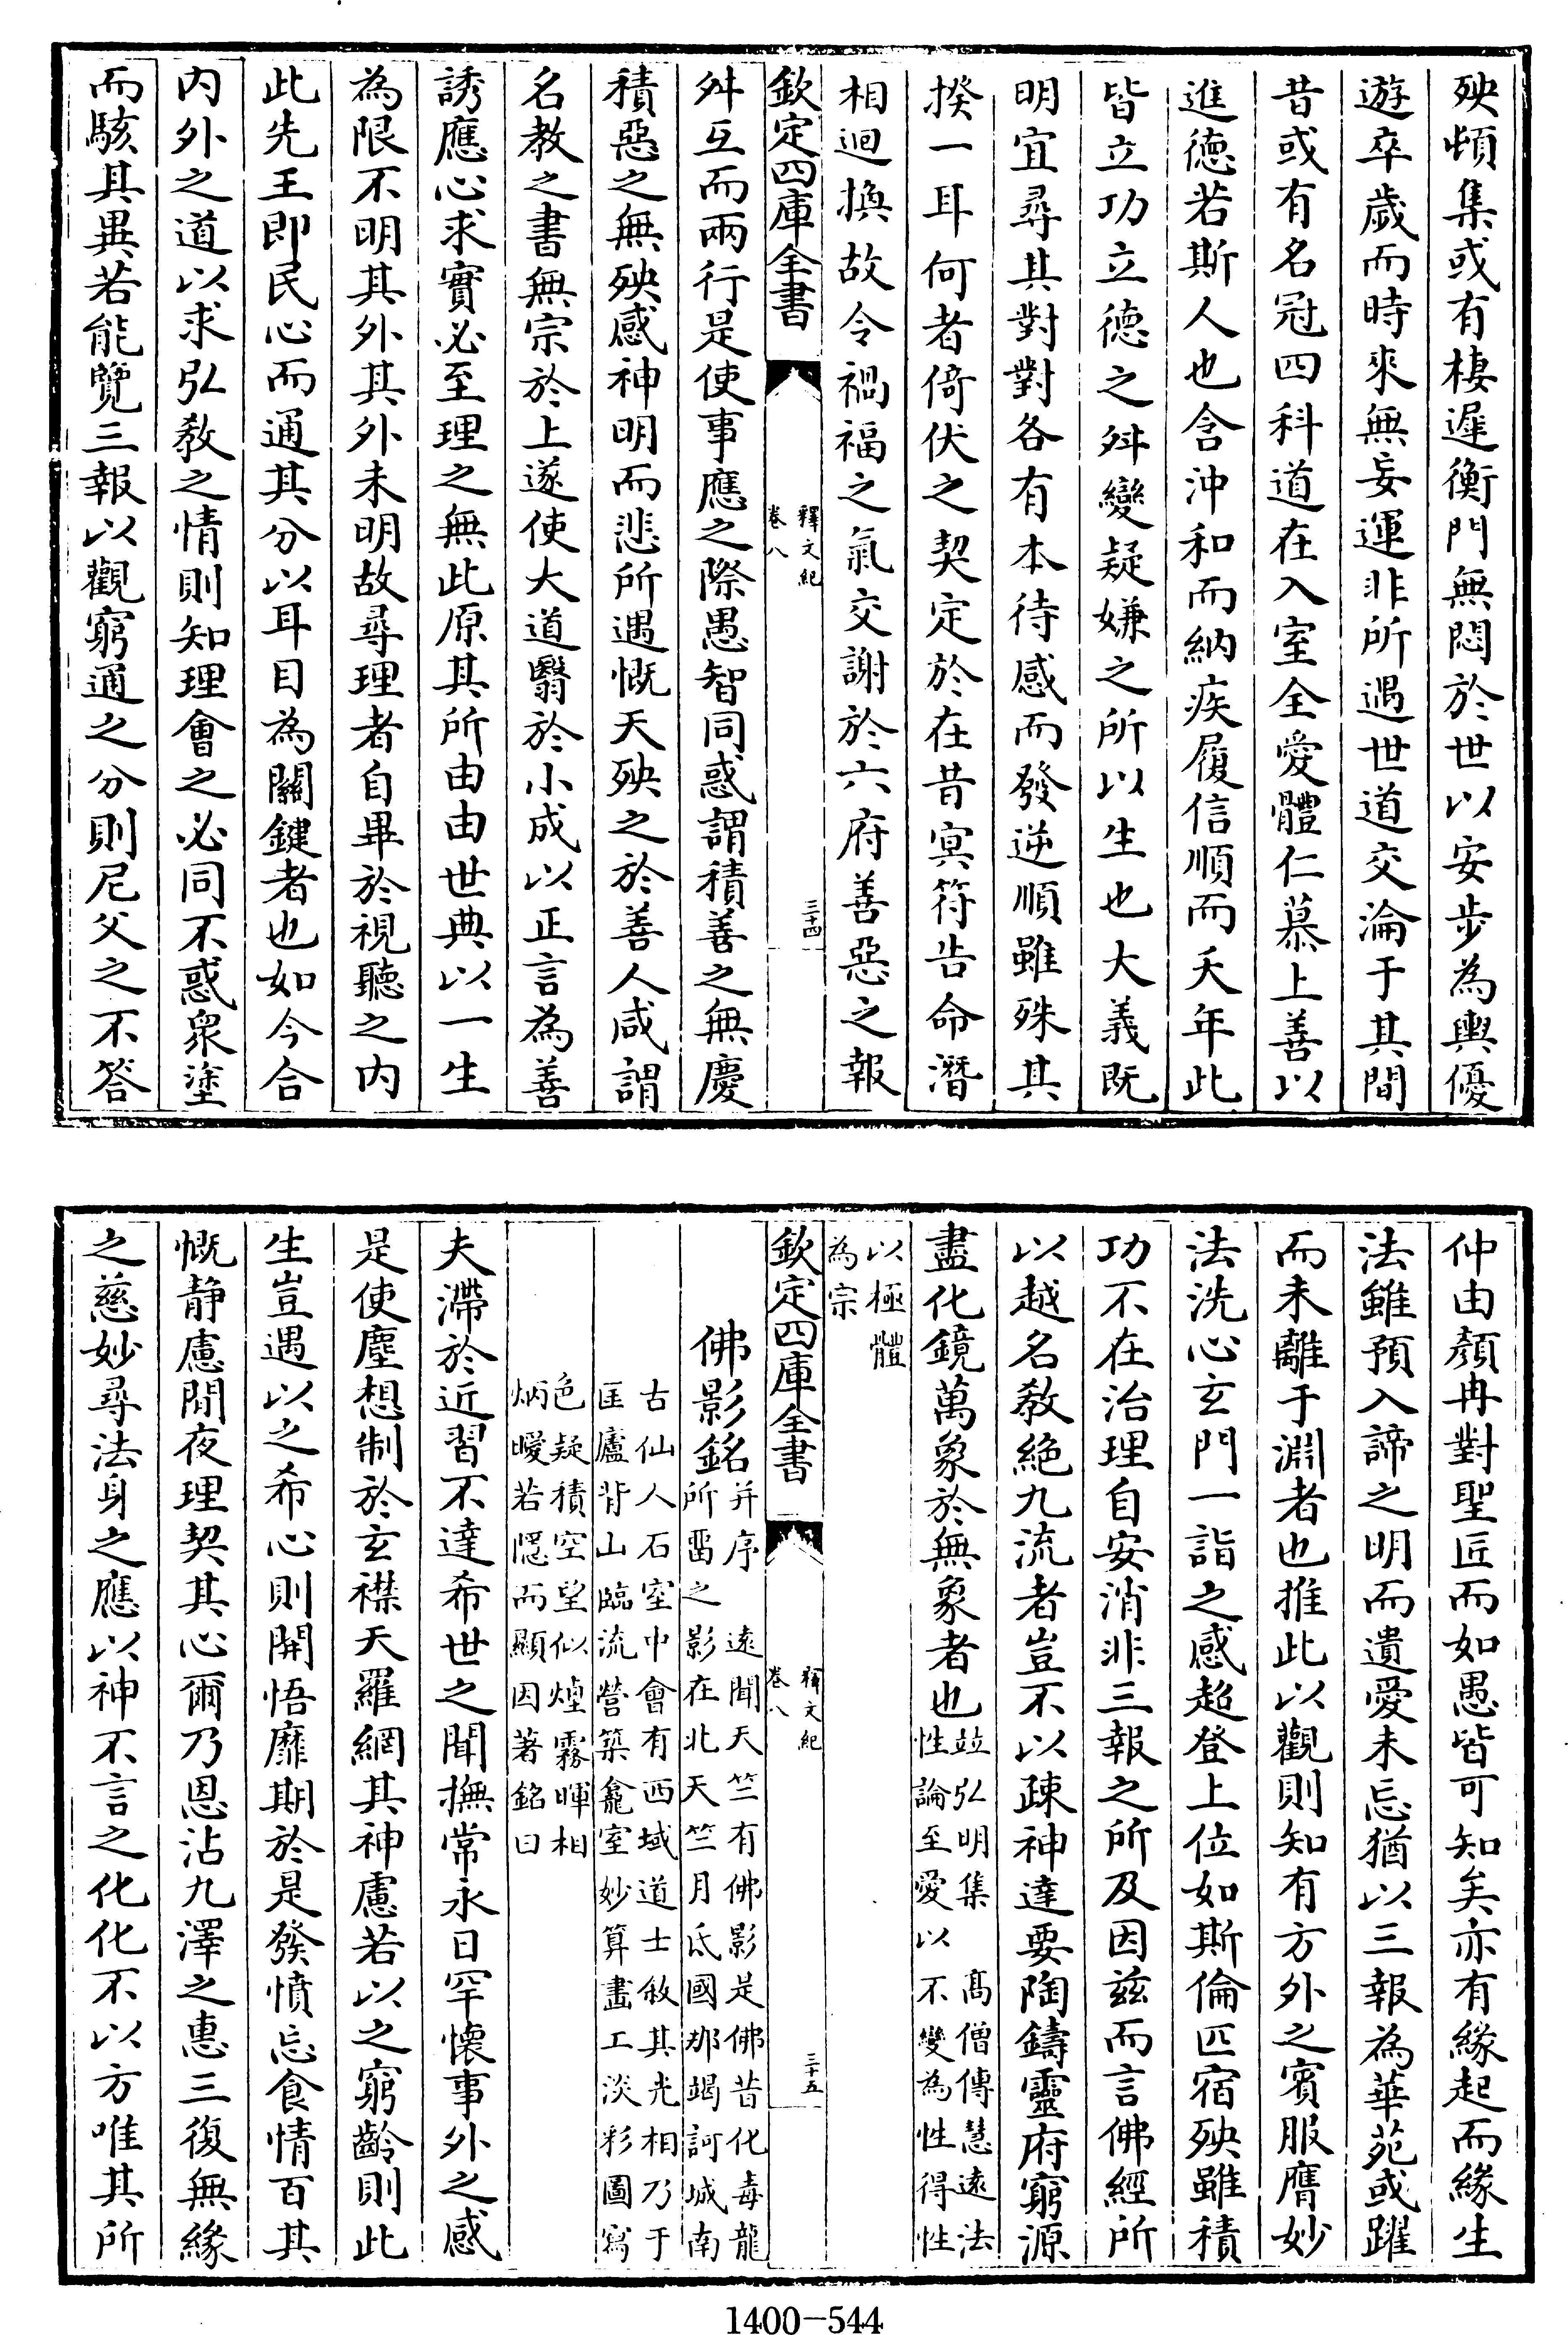 殃頓集或有棲遲衡門無悶於世以安步為輿優
遊卒歲而時來無妄運非所遇世道交淪于其間
昔或有名冠四科道在入室全愛體仁慕上善以
進德若斯人也含沖和而納疾履信順而夭年此
皆立功立德之舛變疑嫌之所以生也大義既
明宜尋其對對各有本待感而發逆順雖殊其
揆一耳何者倚伏之契定於在昔冥符告命潛
相迴換故令禍福之氣交謝於六府善惡之報
欽定四庫全書
釋文紀
卷八
三十四
舛互而兩行是使事應之際愚智同惑謂積善之無慶
積惡之無殃感神明而悲所遇慨天殃之於善人咸謂
名教之書無宗於上遂使大道翳於小成以正言為善
誘應心求實必至理之無此原其所由由世典以一生
為限不明其外其外未明故尋理者自畢於視聽之內
此先王即民心而通其分以耳目為關鍵者也如今合
內外之道以求弘教之情則知理會之必同不惑衆塗
而駭其異若能覽三報以觀窮通之分則尼父之不答
仲由顏冉對聖匠而如愚皆可知矣亦有緣起而緣生
法雖預入諦之明而遺愛未忘猶以三報為華苑或躍
而未離于淵者也推此以觀則知有方外之賓服膺妙
法洗心玄門一詣之感超登上位如斯倫匹宿殃雖積
功不在治理自安消非三報之所及因茲而言佛經所
以越名教絶九流者豈不以疎神達要陶鑄靈府窮源
盡化鏡萬象於無象者也
並弘明集 高僧傳慧遠法
性論至愛以不變為性得性
以極體
為宗
欽定四庫全書
釋文紀
卷八
三十五
佛影銘
并序 遠聞天竺有佛影是佛昔化毒龍
所畱之影在北天竺月氏國那竭訶城南
古仙人石室中會有西域道士敘其光相乃于
匡廬背山臨流營築龕室妙算畫工淡彩圖寫
色疑積空望似煙霧暉相
炳曖若隱而顯因著銘曰
夫滯於近習不達希世之聞撫常永日罕懷事外之感
是使塵想制於玄襟天羅網其神慮若以之窮齡則此
生豈遇以之希心則開悟靡期於是發憤忘食情百其
慨静慮閒夜理契其心爾乃恩沾九澤之惠三復無緣
之慈妙尋法身之應以神不言之化化不以方唯其所
1400-544